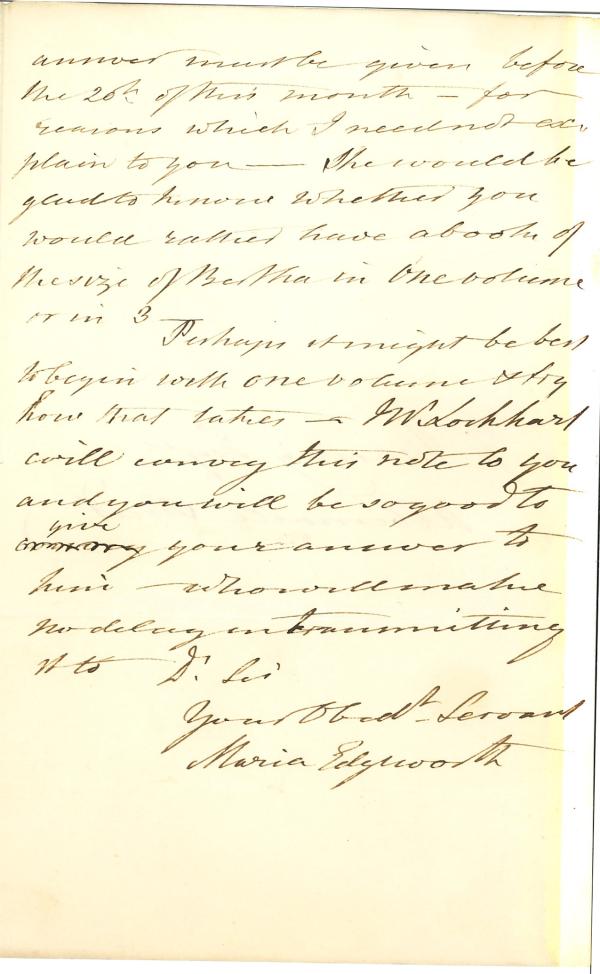 answer must be given before
the 26th. of this month — for
reasons which I need not ex-
plain to you — She would be
glad to know whether you
would rather have a book of
the size of Bertha in One volume
or in 3
Perhaps it might be best
to begin with one volume & try
how that takes — Mr. Lockhart
will convey this note to you
and you will be so good to
give
your answer to
him — who will make
no delay in transmitting
it to Dr. Sir
Your Obedt. Servant
Maria Edgeworth